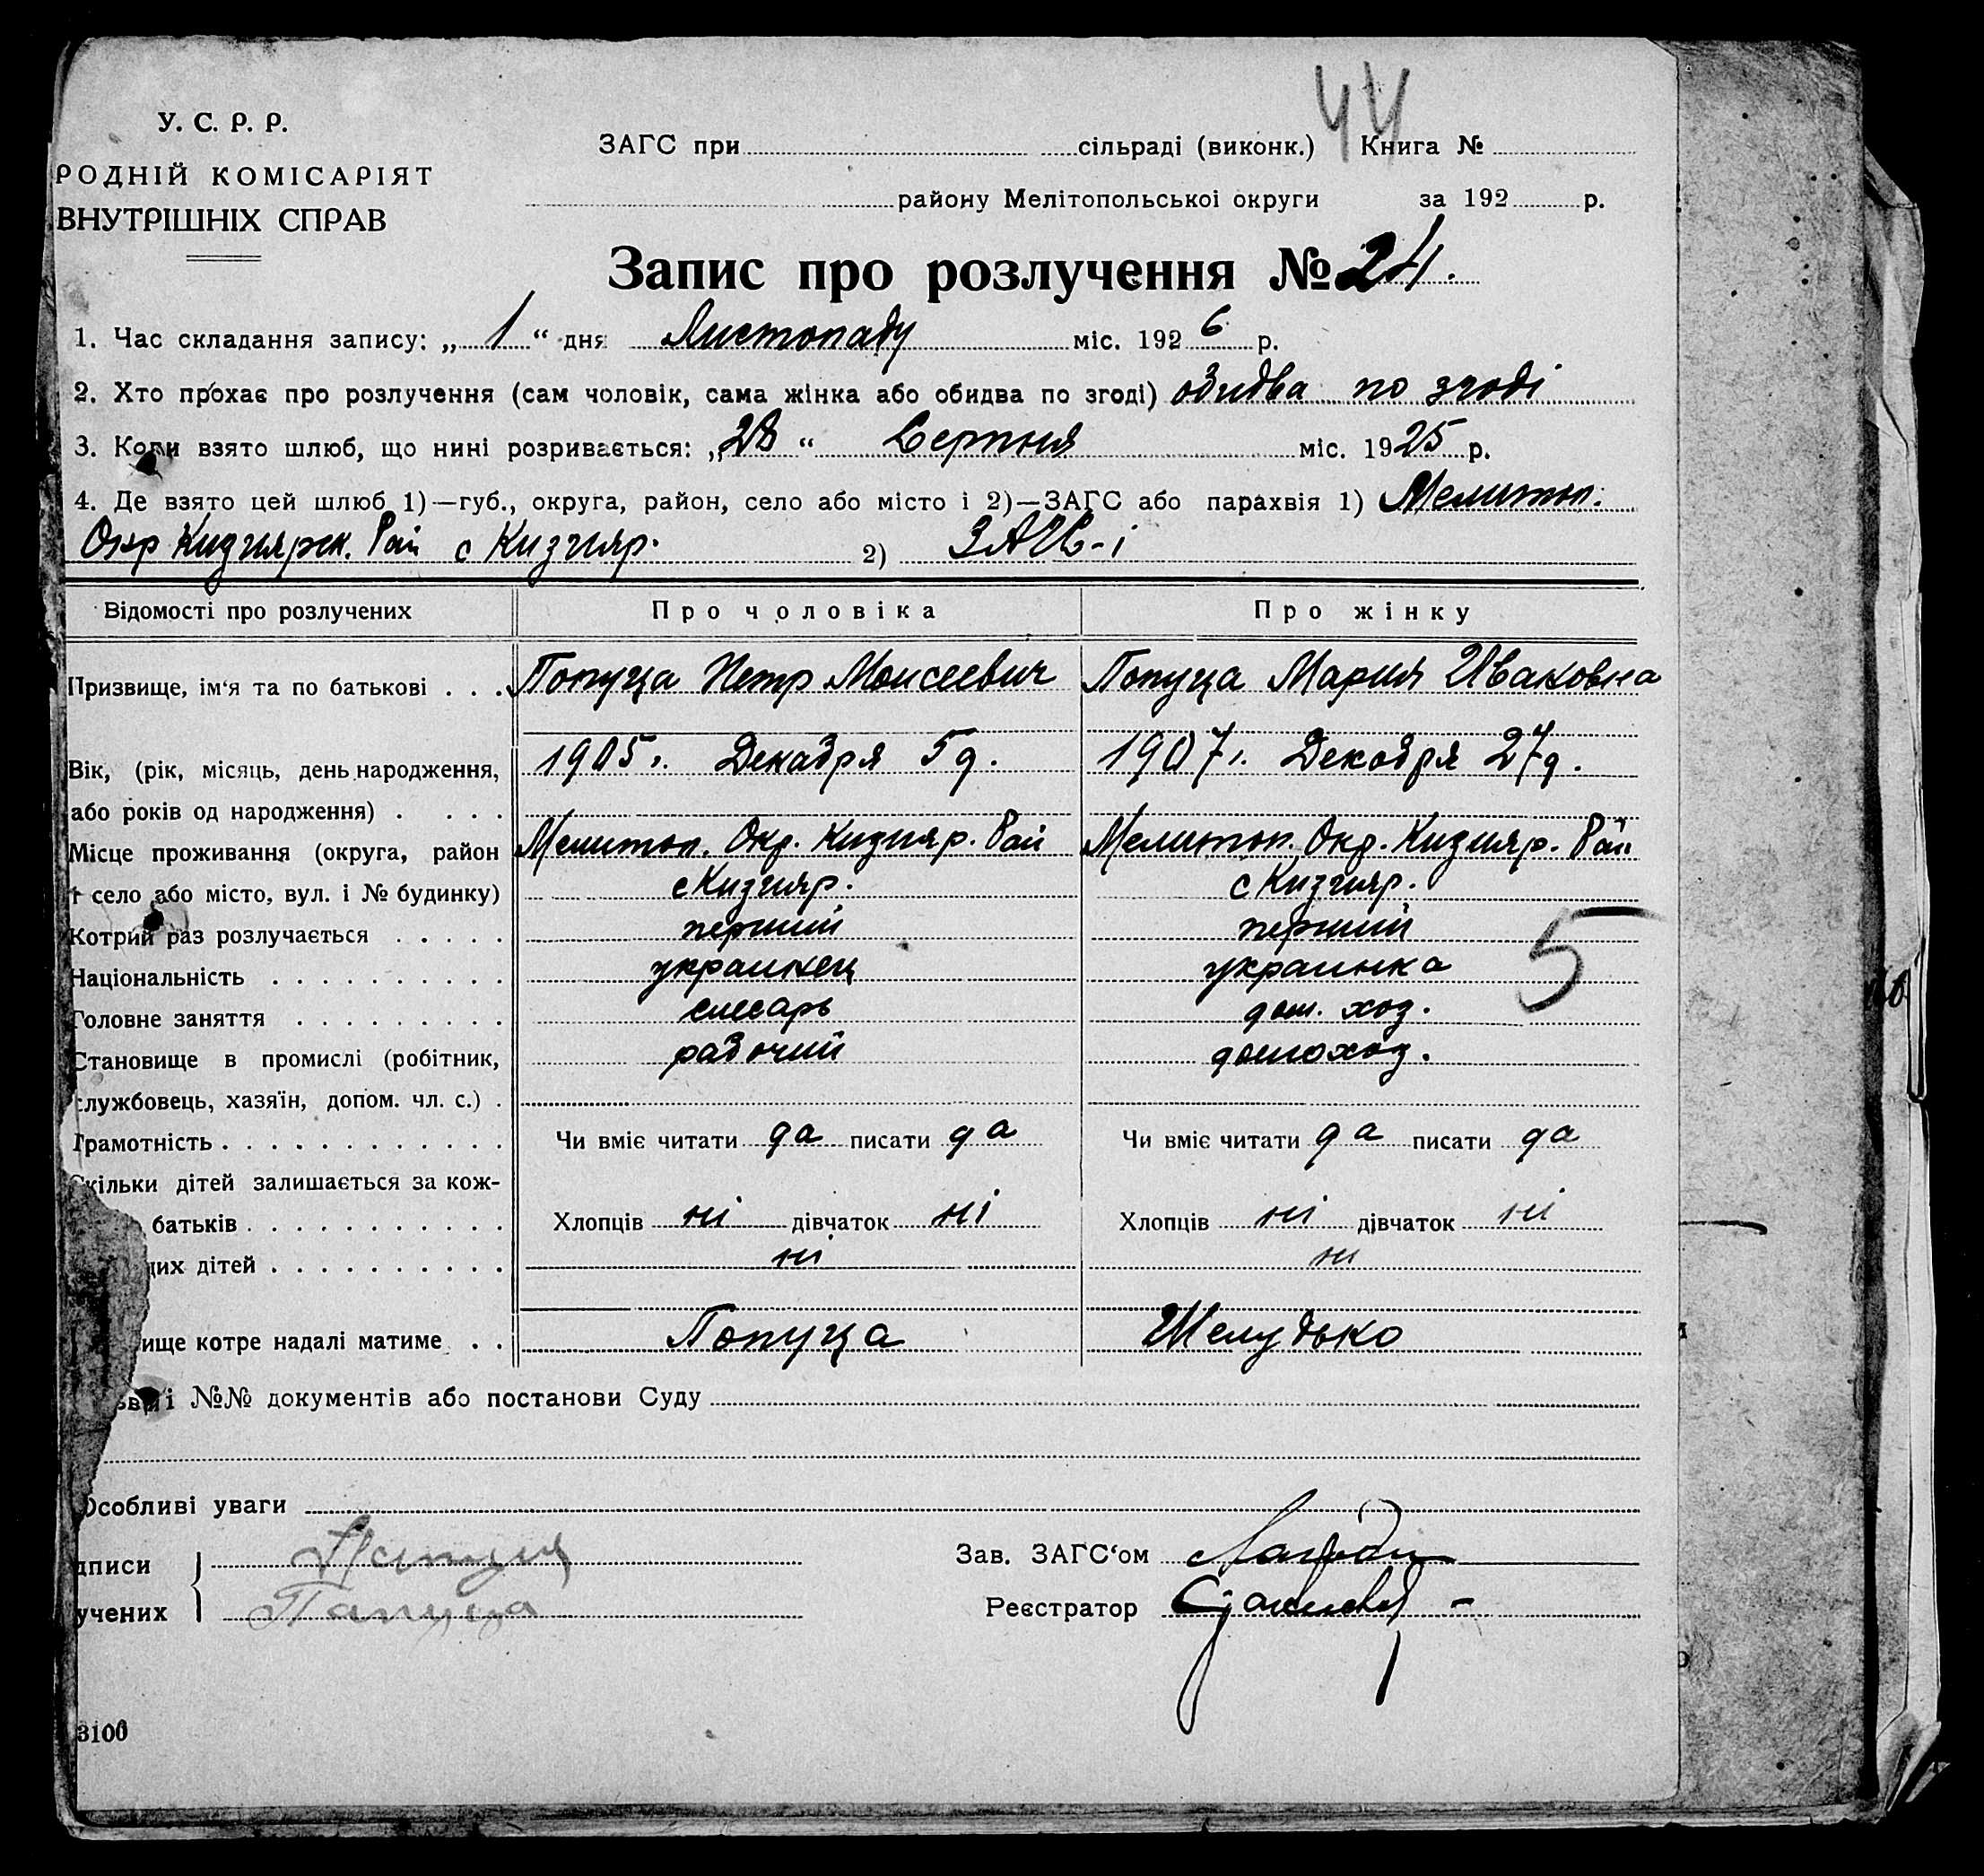 44
У. С. Р. Р.
РОДНІЙ КОМІСАРІЯТ
ВНУТРІШНІХ СПРАВ
ЗАГС при сільраді (виконк.) Книга №
району Мелітопольської округи за 192 р.
Запис про розлучення № 24.
1. Час складання запису: „ 1 “ дня Листопаду міс. 192 6 р.
2. Хто прохає про розлучення (сам чоловік, сама жінка або обидва по згоді) обидва по згоді
3. Коли взято шлюб, що нині розривається: „ 28 “ Серпня міс. 19 25 р.
4. Де взято цей шлюб 1)—губ., округа, район, село або місто і 2)—ЗАГС або парахвія 1) Мелитоп.
Окр Кизиярск. Рай с Кизияр. 2) ЗАГС-і
Відомості про розлучених Про чоловіка Про жінку
Призвище, ім‘я та по батькові . . . Попуца Петр Моисеевич Попуца Мария Ивановна
Вік, (рік, місяць, день народження, 1905 г. Декабря 5 д. 1907 г. Декабря 27 д.
або років од народження) . . . .
Місце проживання (округа, район Мелитоп. Окр. Кизияр. Рай Мелитоп. Окр. Кизияр. Рай
село або місто, вул. і № будинку) с Кизияр. с Кизияр.
Котрий раз розлучається . . . . . перший перший
Національність . . . . . . . . . . украинец украинка
5
Головне заняття . . . . . . . . . слесарь дом. хоз.
Становище в промислі (робітник, рабочий домохоз.
службовець, хазяїн, допом. чл. с.) .
Грамотність . . . . . . . . . . . . Чи вміє читати да писати да Чи вміє читати да писати да
Скільки дітей залишається за кож-
батьків . . . . . . . . . . . Хлопців ні дівчаток ні Хлопців ні дівчаток ні
щих дітей . . . . . . . . . . ні ні
ище котре надалі матиме . . Попуца Шелудько
і №№ документів або постанови Суду
Особливі уваги
дписи Зав. ЗАГС‘ом
учених Папуца Реєстратор
3100